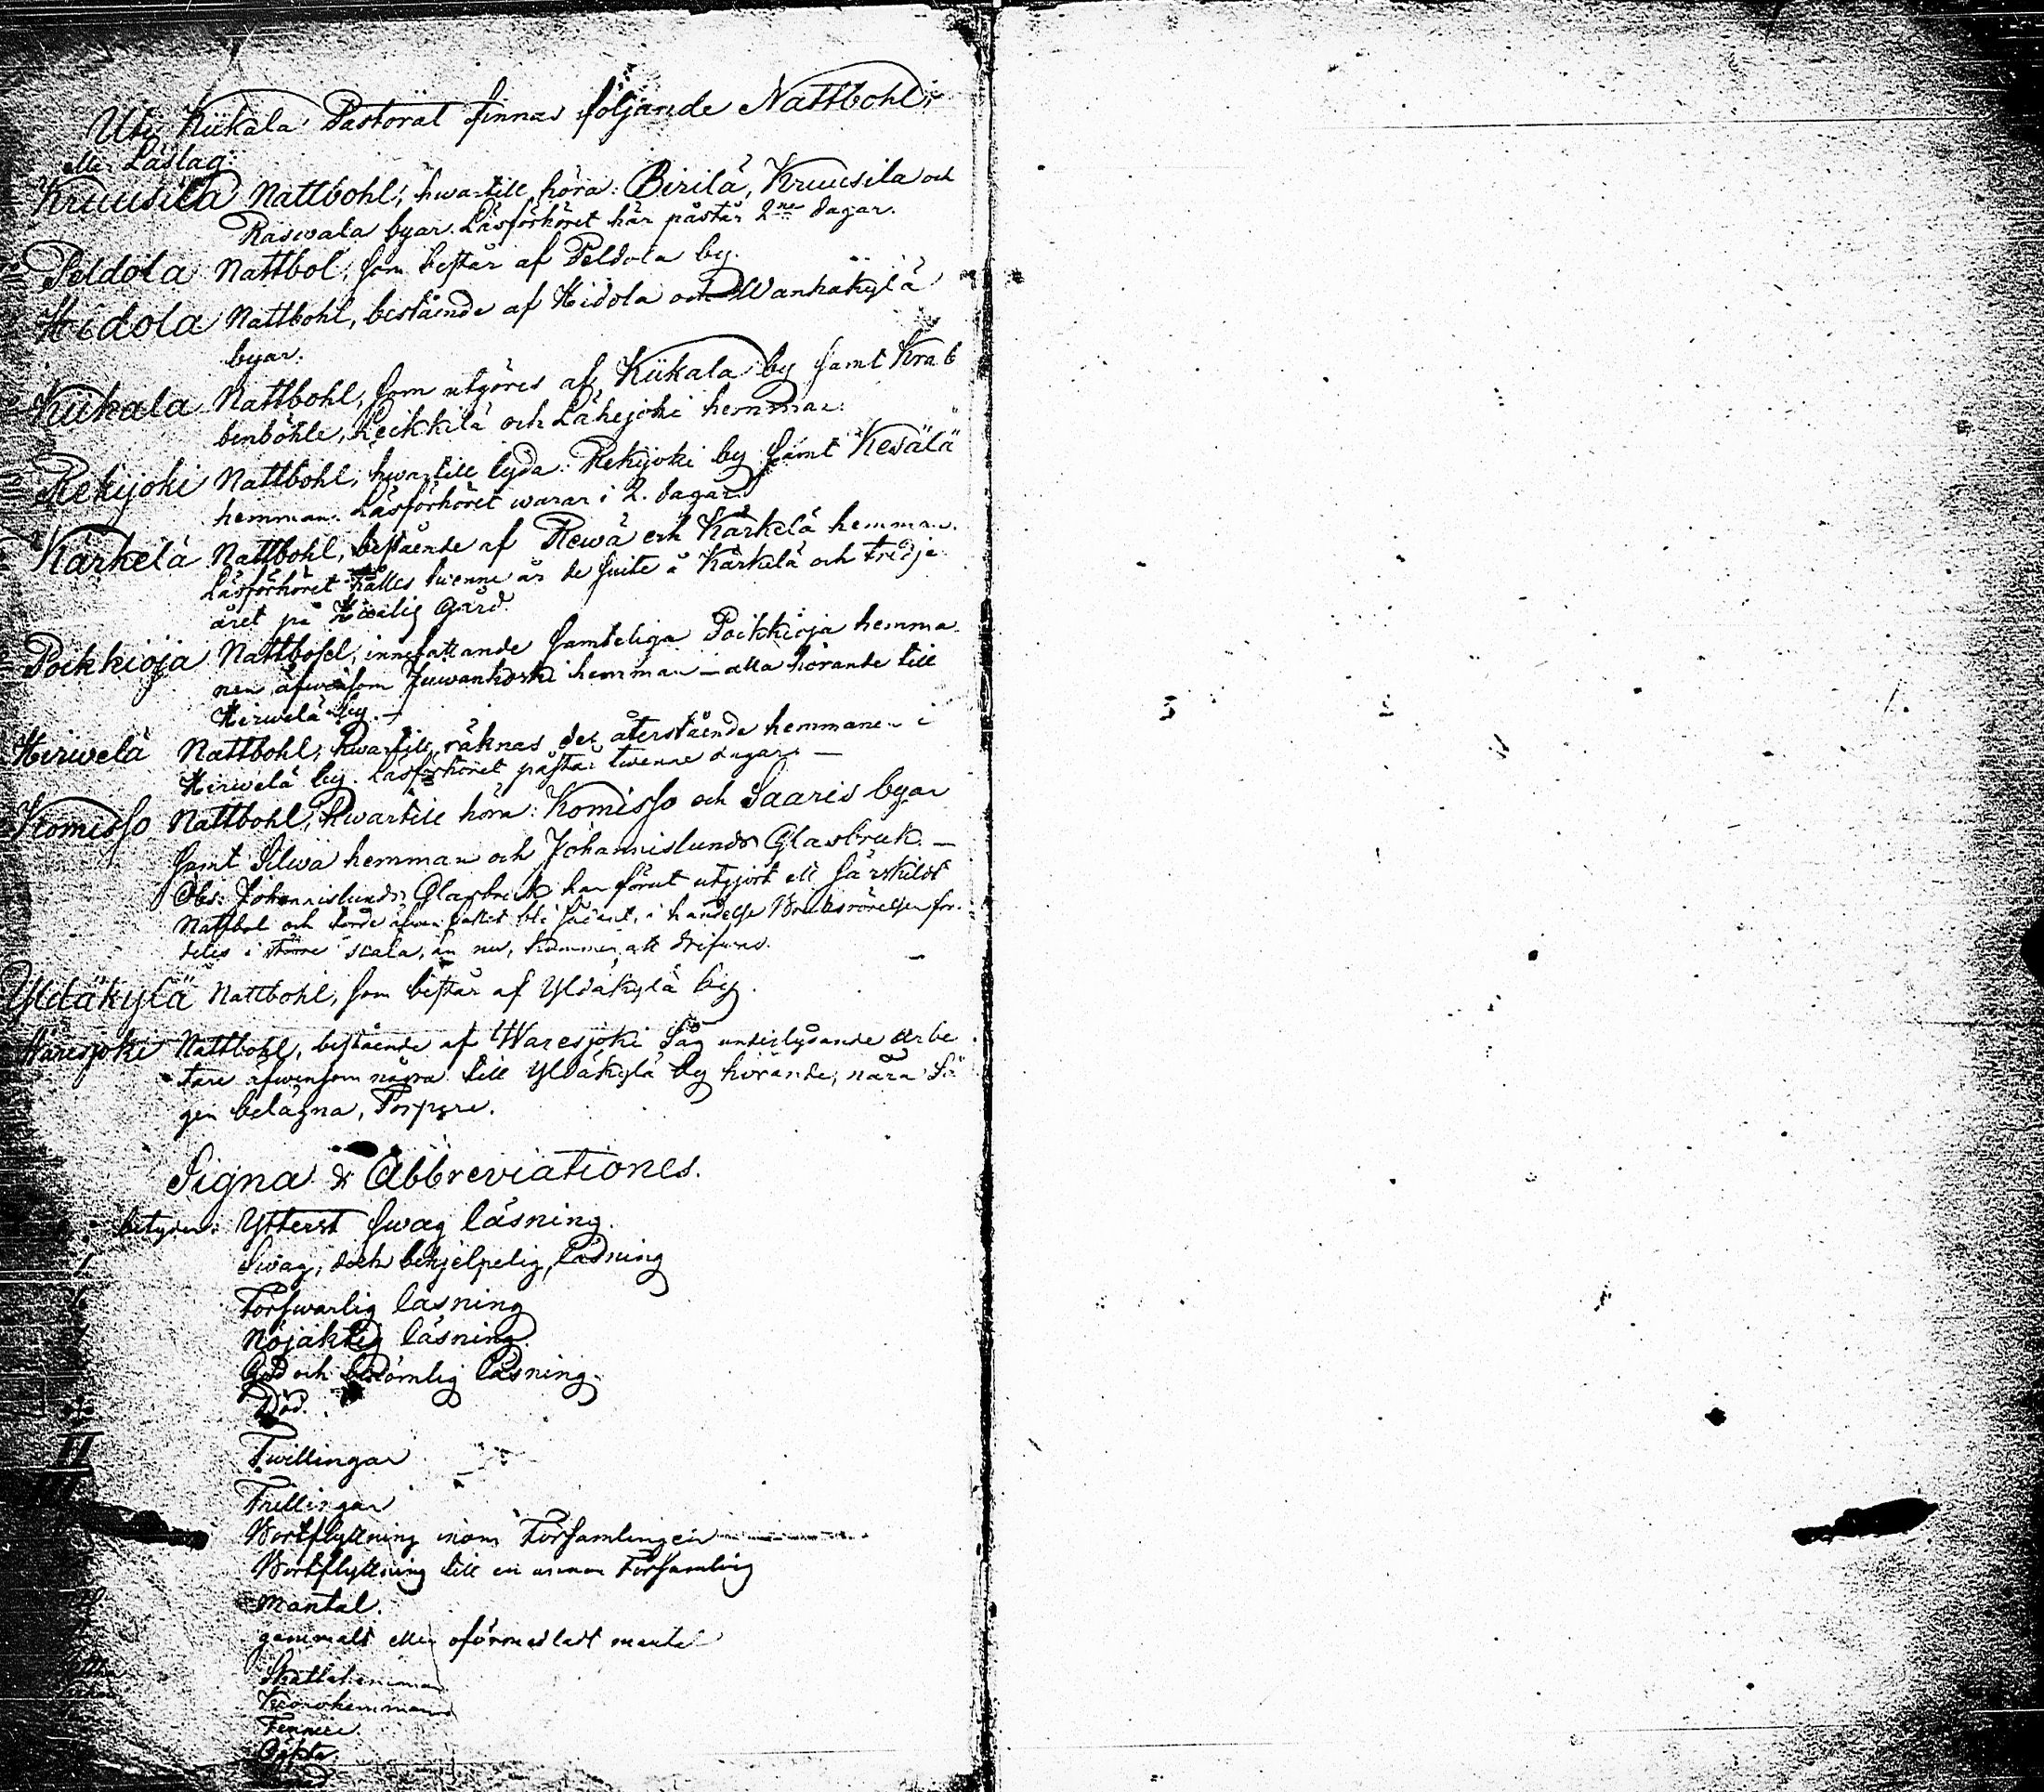 Uti Kiikala Pastorat finnas följande Nattbohl,
eller Läslag:
Kruusila Nattbohl; hwartill höra: Pirilä, Kruusila och
Raswala byar. Läsförhöret här påstår 2ne dagar.
Peldola Nattbol, som består af Peldola by.
Hidola Nattbohl, bestående af Hidola och Wanhakylä
byar.
Kiikala Nattbohl, som utgöres af Kiikala by samt Krab
benböhle, Leikkilä och Lähejoki hemman.
Rekijoki Nattbohl, hwartill lyda: Rekijoki by samt Kesälä
hemman. Läsförhöret warar i 2. dagar.
Kärkelä Nattbohl, bestående af Rewä och Kärkelä hemman.
Läsförhöret hålles twenne år de suite å Kärkelä och tredje
året på gård.
Poikkioja Nattbohl, innefattande samteliga Poikkioja hemma
nen äfwensom Juwankoski hemman – alla hörande till
Hirwelä by. –
Hirwelä Nattbohl, hwartill räknas de återstående hemmanen i
Hirwelä by. Läsförhöret påstår twenne dagar. –
Komisso Nattbohl, hwartill höra: Komisso och Saaris byar
samt Silwä hemman och Johannislunds Glasbruk. –
Obs: Johannislunds Glasbruk har förut utgjort ett särskildt
Nattbol och torde äfwen bli sådant, i händelse Bruksrörelsen
i större scala, än nu, kommer att drifwas.
Yldäkylä Nattbohl, som består af Yldäkylä by.
Waresjoki Nattbohl, bestående af Waresjoki Såg underlydande arbe
tare äfwensom några till Yldäkylä by hörande, nära Så
gen belägna, Torpare.
Signa & Abbreviationes.
betyder: Ytterst swag läsning.
Swag, dock behjelpelig, läsning
Försvarlig läsning
Nöjaktig läsning
God och berömlig läsning.
Död.
II Twillingar
Trillingar
Bortflyttning inom Församlingen
Bortflyttning till en annan Församling
Mantal.
gammalt eller oförmedladt mantal
Skattehemman
Kronohemman